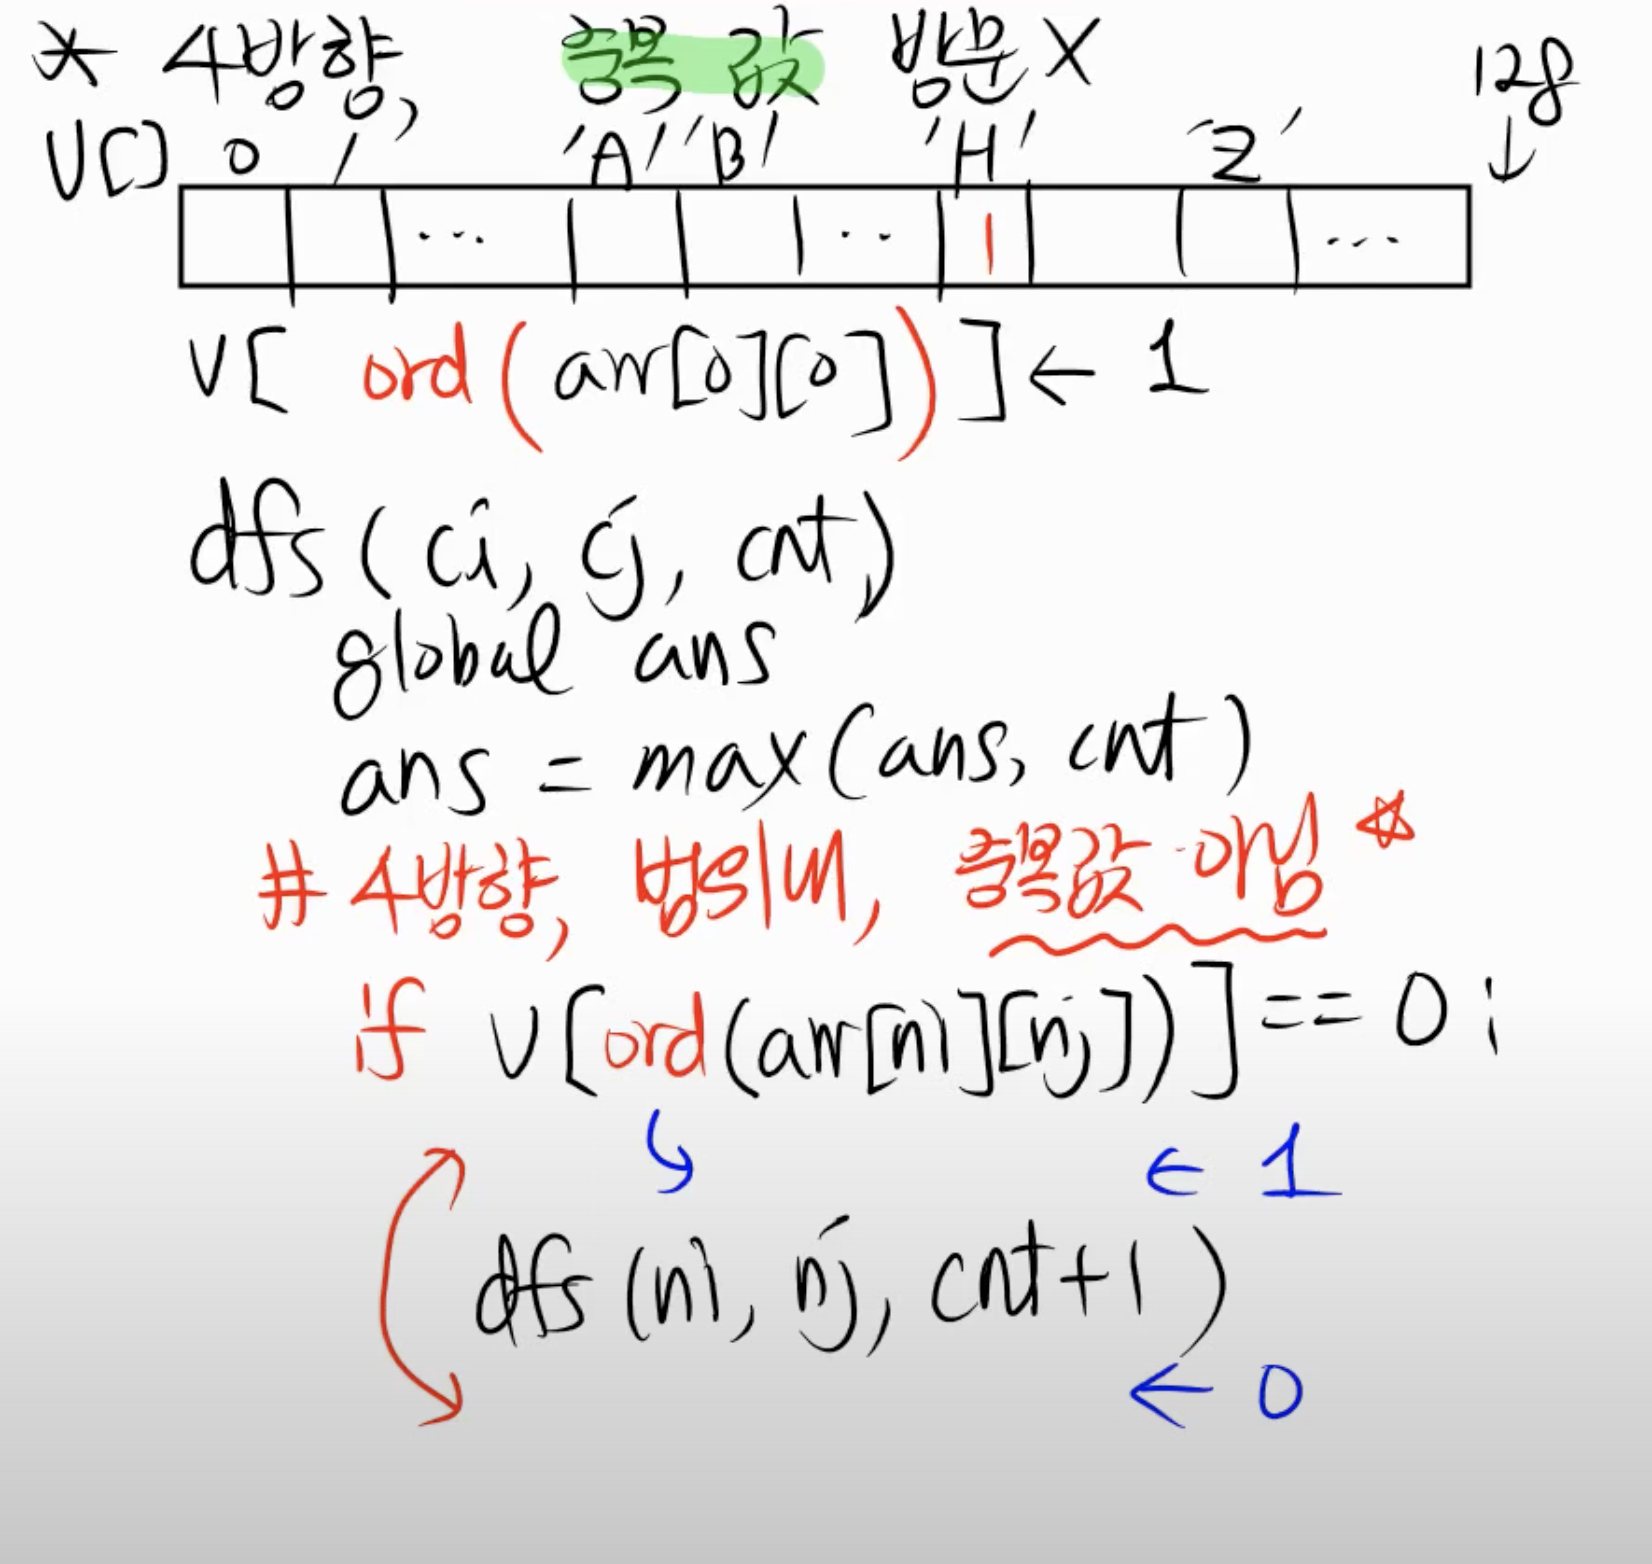 * 4방향, 중복 값 방문X 128
↓
V[] 0 1 'A' 'B' 'H' 'Z'
... .. 1 ...
V[ ord(arr[0][0]) ] ← 1
dfs(ci, cj, cnt)
global ans
ans = max(ans, cnt)
# 4방향, 범위내, 중복값 아님 ☆
if V[ord(arr[ni][nj])] == 0 :
↳ ← 1
dfs(ni, nj, cnt+1)
← 0